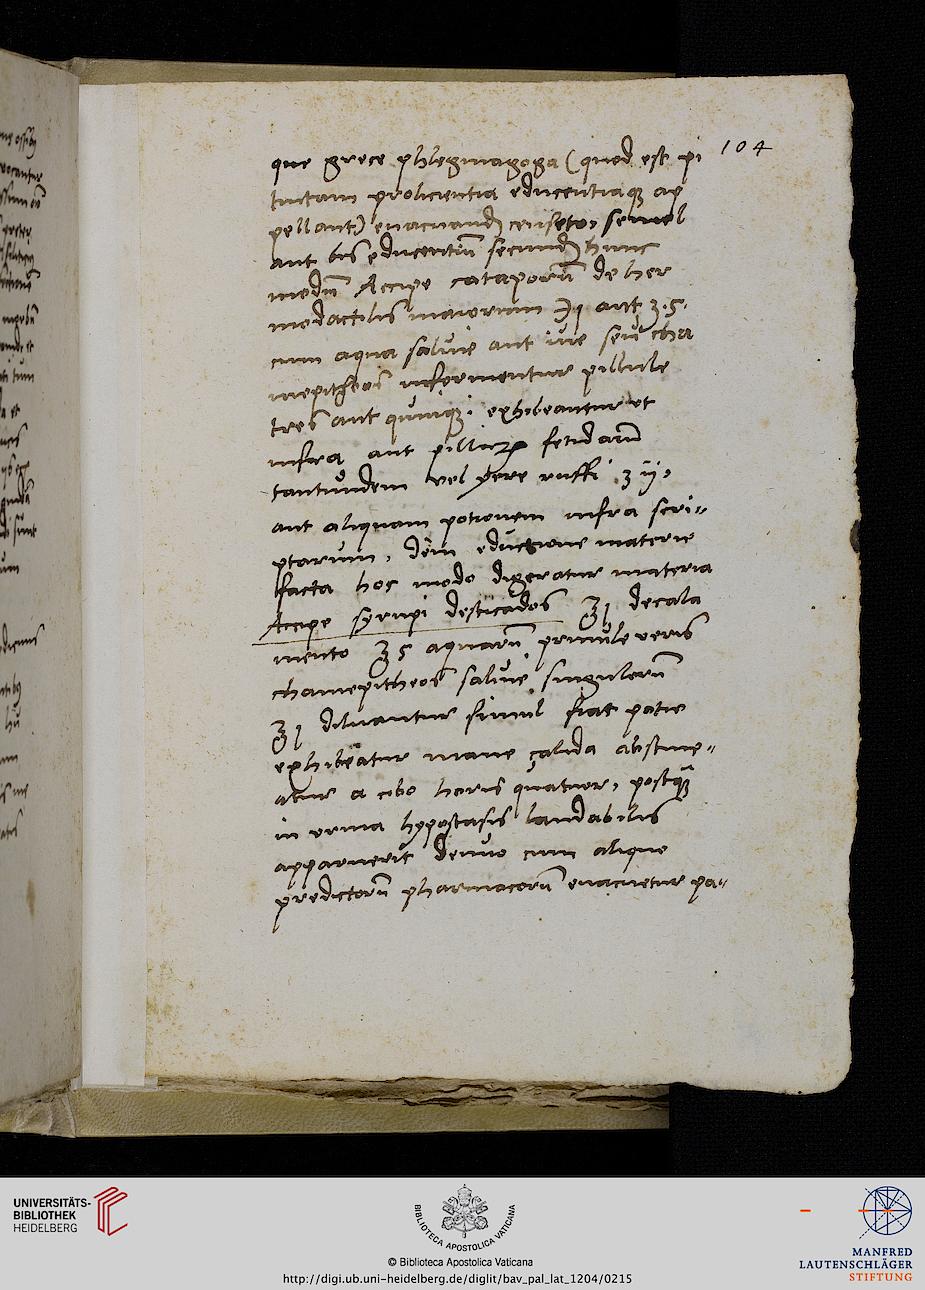 104
que grece phlegmagoga (quod est pi
tuitam prolicientia educentiaque ap
pellant) euacuand censeto, semel
aut bis educentiũ secund hunc
modũ Accipe cataporũ de her
modactilis maiorum ℈j aut ʒ.5.
cum aqua saluie aut iue seu cha
mepitheos informentur pillule
tres aut quinque. exhibeantur ut
infra aut pillularum fetidarũ
tantundem vel yere ruffi ʒ ij,
aut aliquam potionem infra scri„
ptarum, dein eductione materie
facta hoc modo digeratur materia
Accipe syrupi desticados ℥j decala
mento ℥5 aquarũ primule veris
chamepitheos saluie singulorũ
℥j diluantur simul fiat potio
exhibeatur mane calida abstine„
atur a cibo horis quatuor, postq̃
in vrina hypostasis laudabilis
apparuerit denuo cum aliquo
predictorũ pharmacorũ euacuetur pa„
UNIVERSITÄTS-
BIBLIOTHEK
HEIDELBERG
BIBLIOTECA APOSTOLICA VATICANA
© Biblioteca Apostolica Vaticana
http://digi.ub.uni-heidelberg.de/diglit/bav_pal_lat_1204/0215
MANFRED
LAUTENSCHLÄGER
STIFTUNG